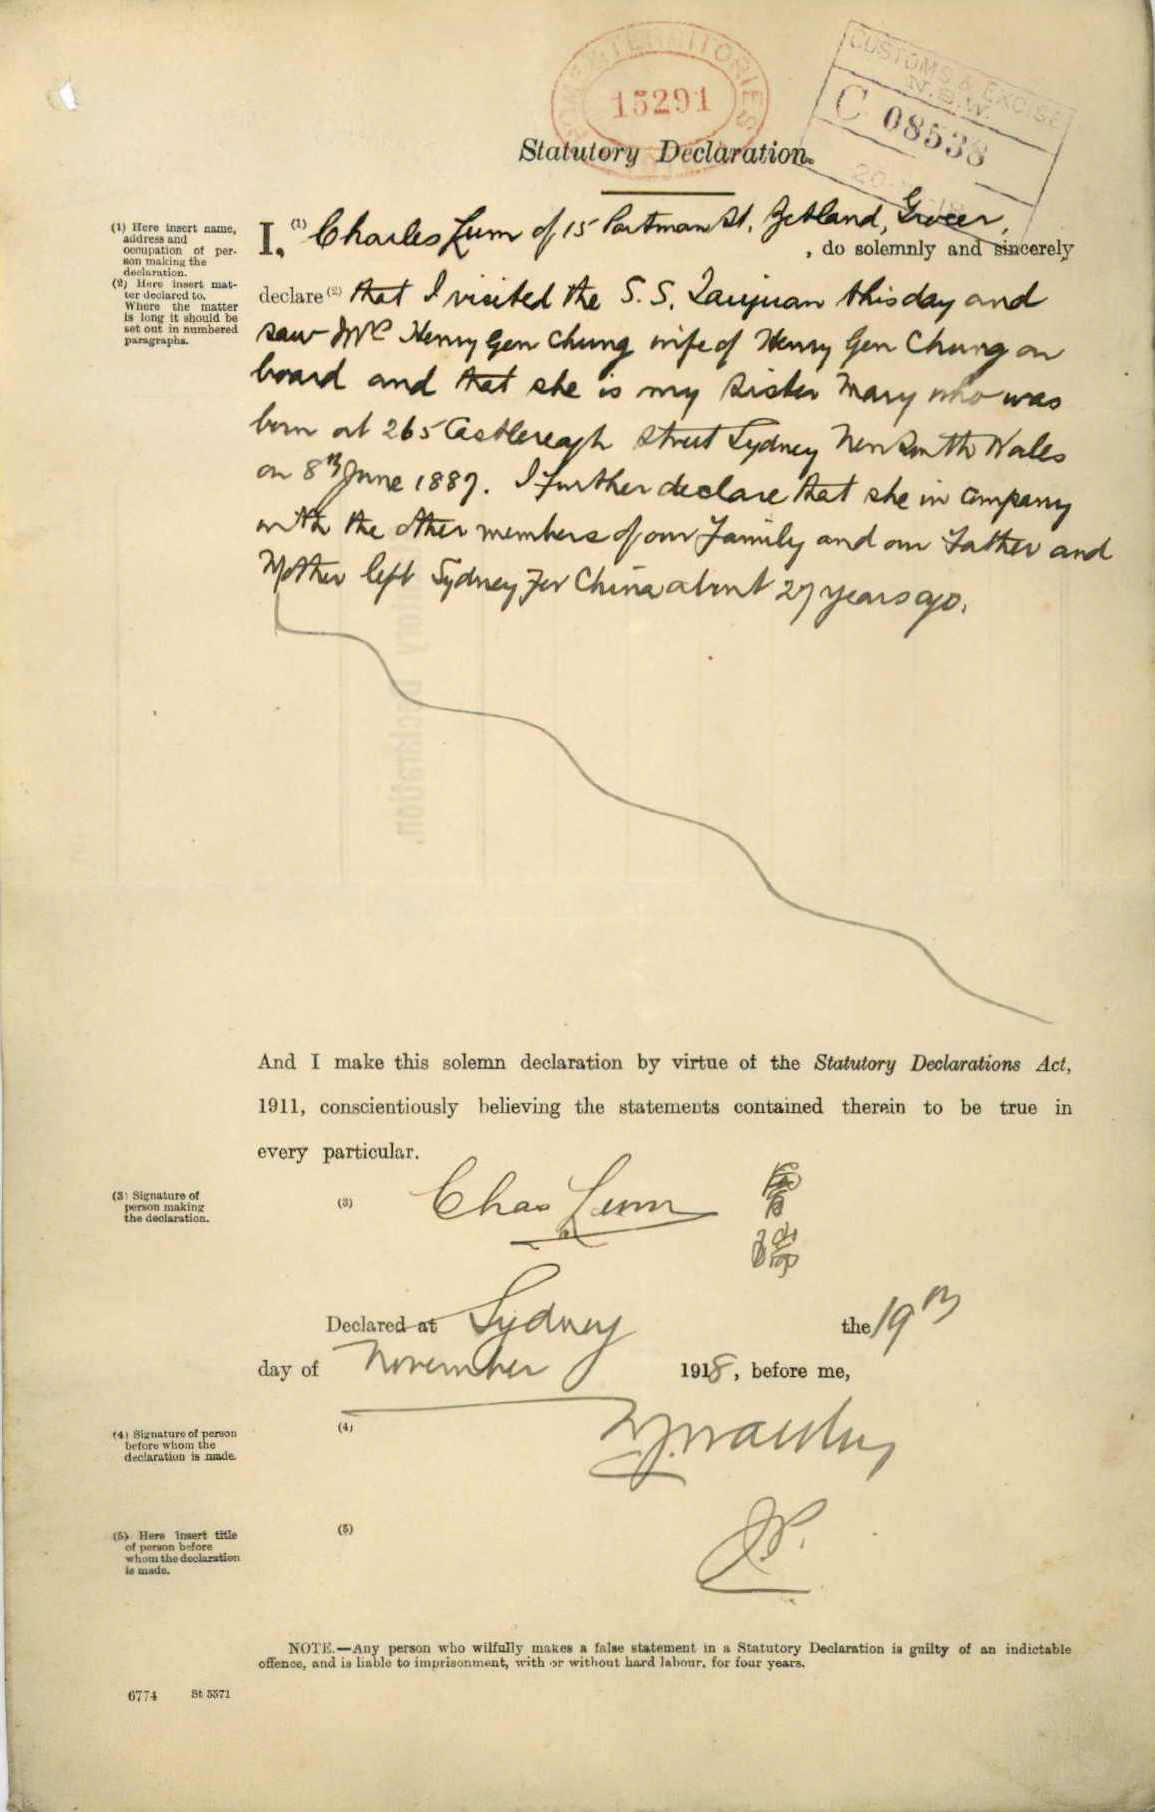 HOME & TERRITORIES
15291
CUSTOMS & EXCISE
N.S.W.
C 08538
Statutory Declaration.
(1) Here insert name,
address and
occupation of per-
son making the
declaration.
(2) Here insert mat-
ter declared to.
Where the matter
is long it should be
set out in numbered
paragraphs.
I, (1) Charles Lum of 15 Portman St. Zetland, Grocer,
, do solemnly and sincerely
declare (2) that I visited the S.S. Taiyuan this day and
saw Mrs Henry Gen Chung wife of Henry Gen Chung on
board and that she is my sister Mary who was
born at 265 Castlereagh Street Sydney New South Wales
on 8th June 1887. I further declare that she in company
with the other members of our Family and our Father and
Mother left Sydney for China about 27 years ago.
And I make this solemn declaration by virtue of the Statutory Declarations Act,
1911, conscientiously believing the statements contained therein to be true in
every particular.
(3) Signature of
person making
the declaration.
(3) Chas Lum
Declared at Sydney the 19th
day of November 1918, before me,
(4) Signature of person
before whom the
declaration is made.
(4)
(5) Here insert title
of person before
whom the declaration
is made.
(5) J.P.
NOTE.—Any person who wilfully makes a false statement in a Statutory Declaration is guilty of an indictable
offence, and is liable to imprisonment, with or without hard labour, for four years.
6774 St 5571